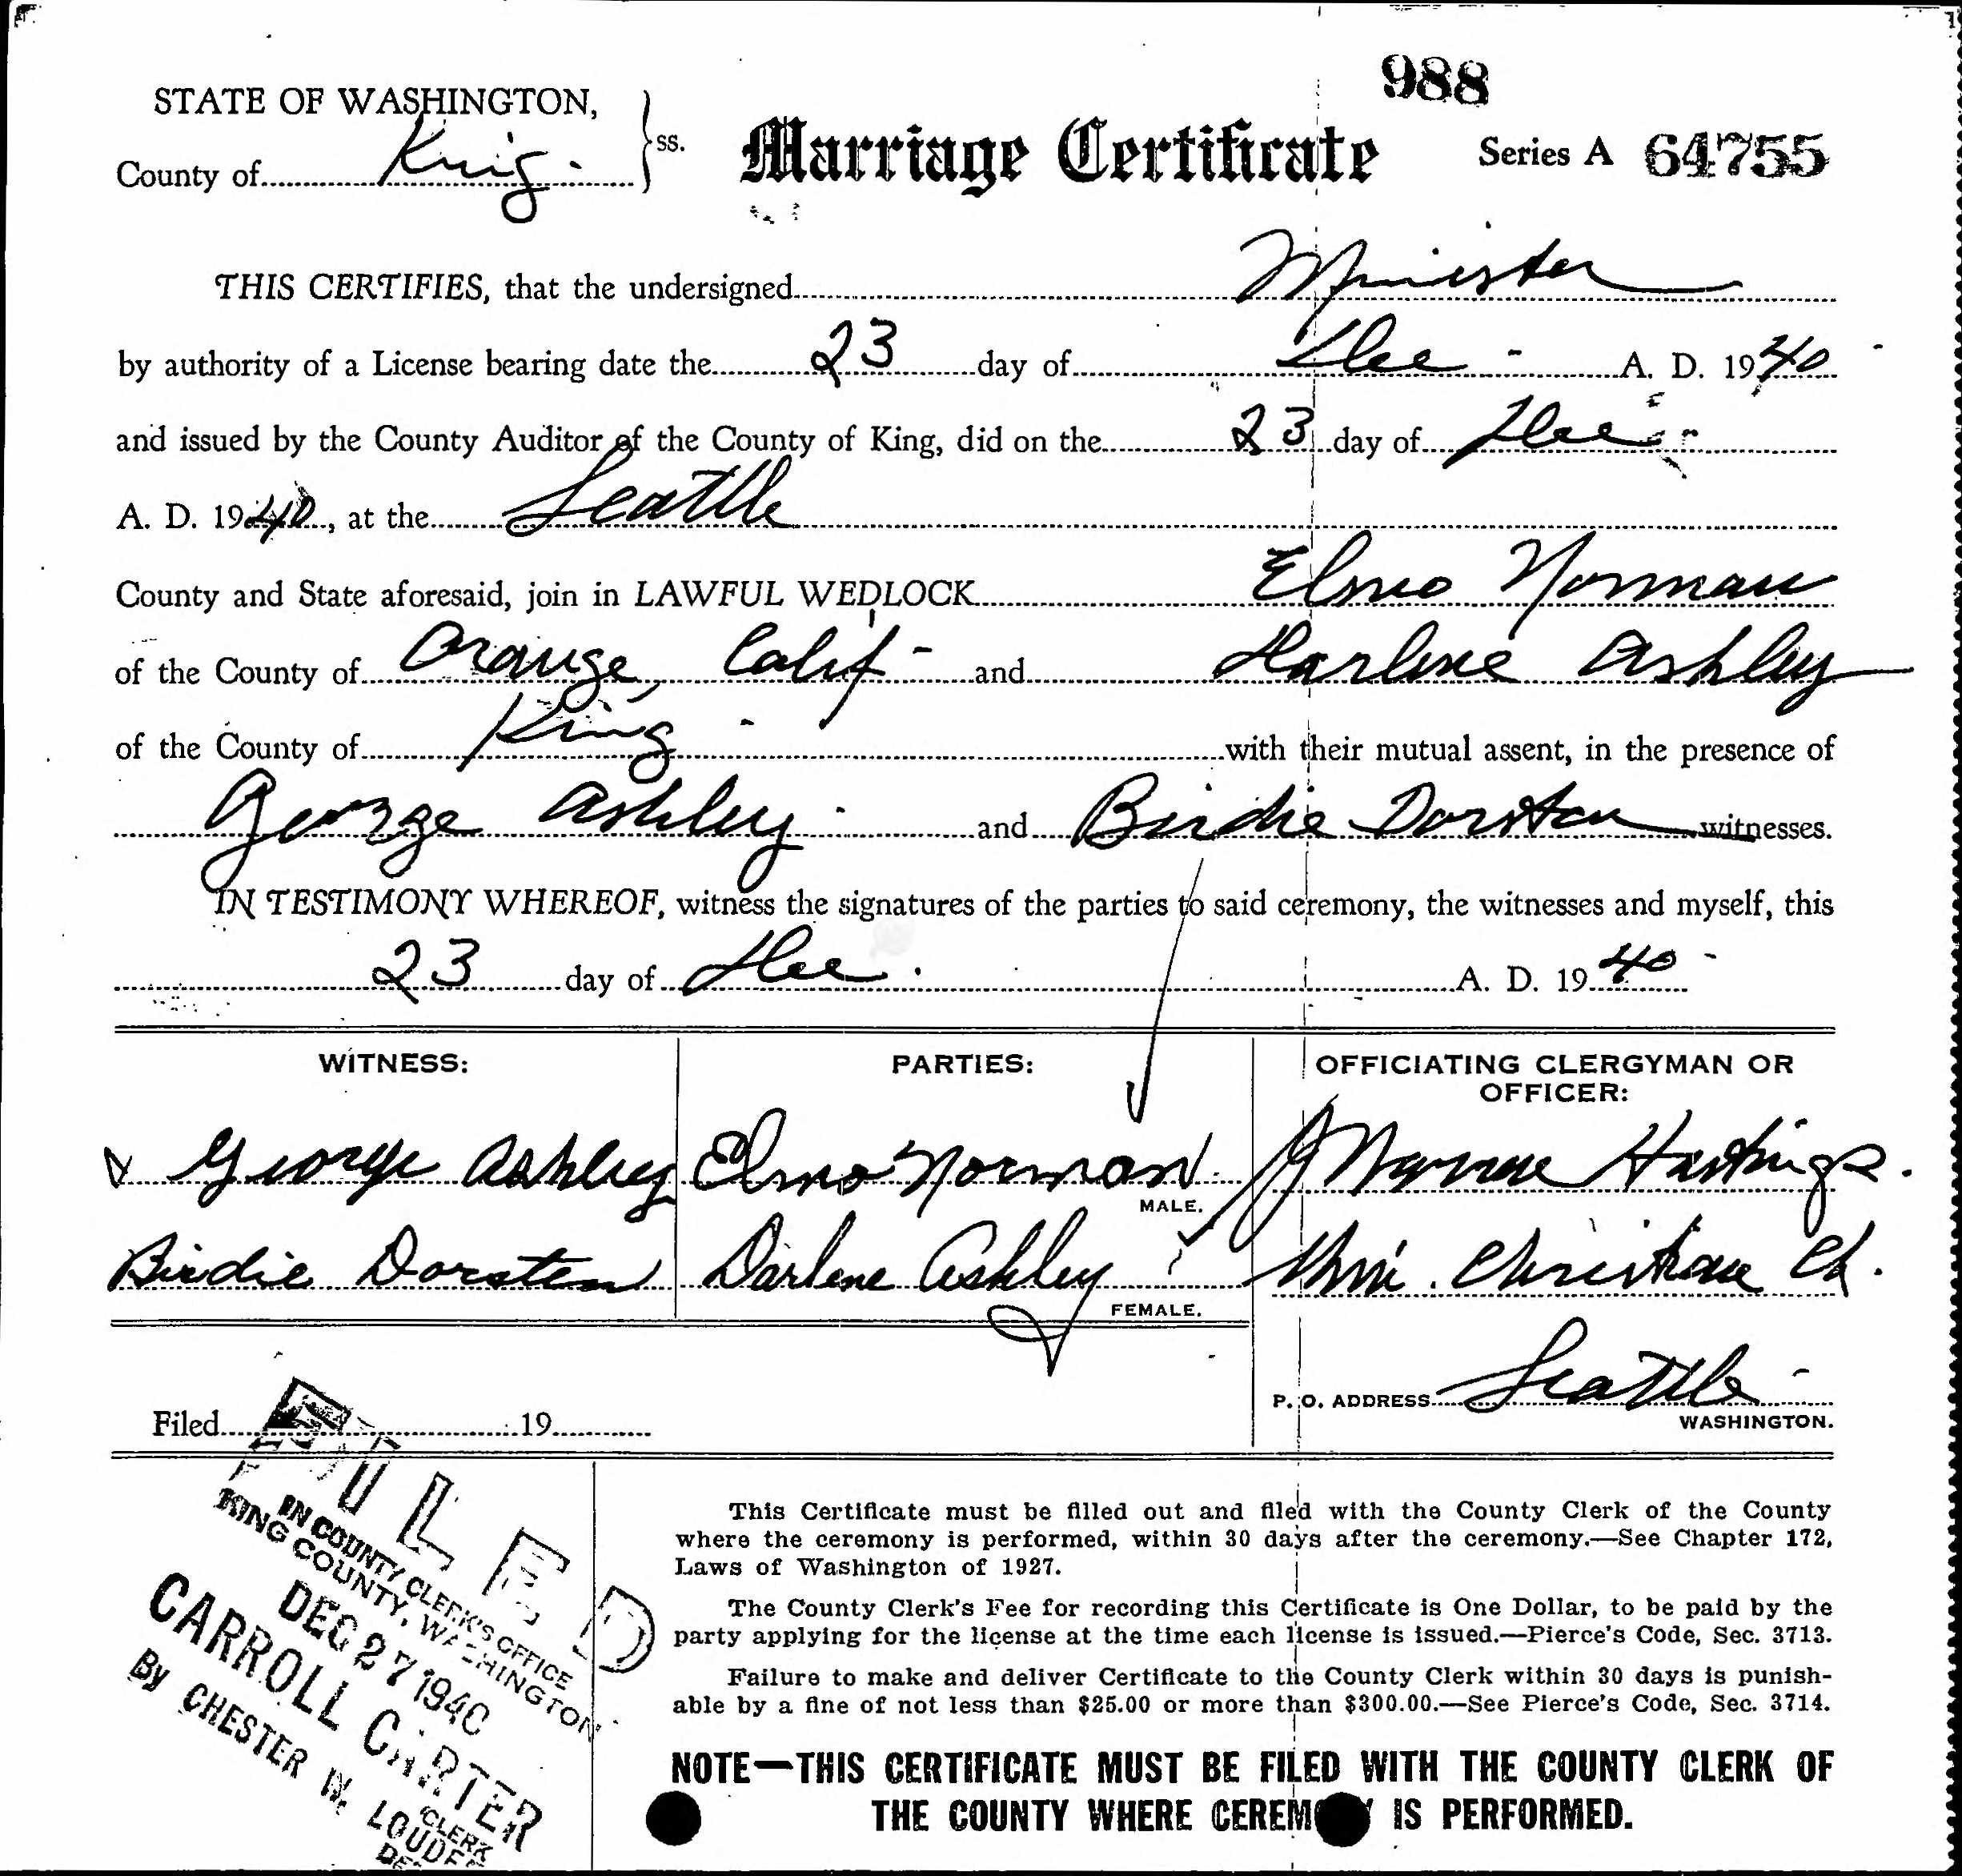 988
STATE OF WASHINGTON,
County of King. ss.
Marriage Certificate
Series A 64755
THIS CERTIFIES, that the undersigned Minister
by authority of a License bearing date the 23 day of Dec - A. D. 1940
and issued by the County Auditor of the County of King, did on the 23 day of Dec
A. D. 1940, at the Seattle
County and State aforesaid, join in LAWFUL WEDLOCK Elmo Norman
of the County of Orange, Calif - and Darlene Ashley
of the County of King with their mutual assent, in the presence of
George Ashley and Birdie Dorsten witnesses.
IN TESTIMONY WHEREOF, witness the signatures of the parties to said ceremony, the witnesses and myself, this
23 day of Dec. A. D. 1940
WITNESS:
PARTIES:
OFFICIATING CLERGYMAN OR
OFFICER:
George Ashley
Elmo Norman
MALE.
Hastings.
Birdie Dorsten
Darlene Ashley
FEMALE.
Christian Ch.
P. O. ADDRESS Seattle
WASHINGTON.
Filed 19
FILED
IN COUNTY CLERK'S OFFICE
KING COUNTY, WASHINGTON
DEC 27 1940
CARROLL CARTER
CLERK
By CHESTER W.
This Certificate must be filled out and filed with the County Clerk of the County
where the ceremony is performed, within 30 days after the ceremony.—See Chapter 172,
Laws of Washington of 1927.
The County Clerk's Fee for recording this Certificate is One Dollar, to be paid by the
party applying for the license at the time each license is issued.—Pierce's Code, Sec. 3713.
Failure to make and deliver Certificate to the County Clerk within 30 days is punish-
able by a fine of not less than $25.00 or more than $300.00.—See Pierce's Code, Sec. 3714.
NOTE—THIS CERTIFICATE MUST BE FILED WITH THE COUNTY CLERK OF
THE COUNTY WHERE CEREMONY IS PERFORMED.